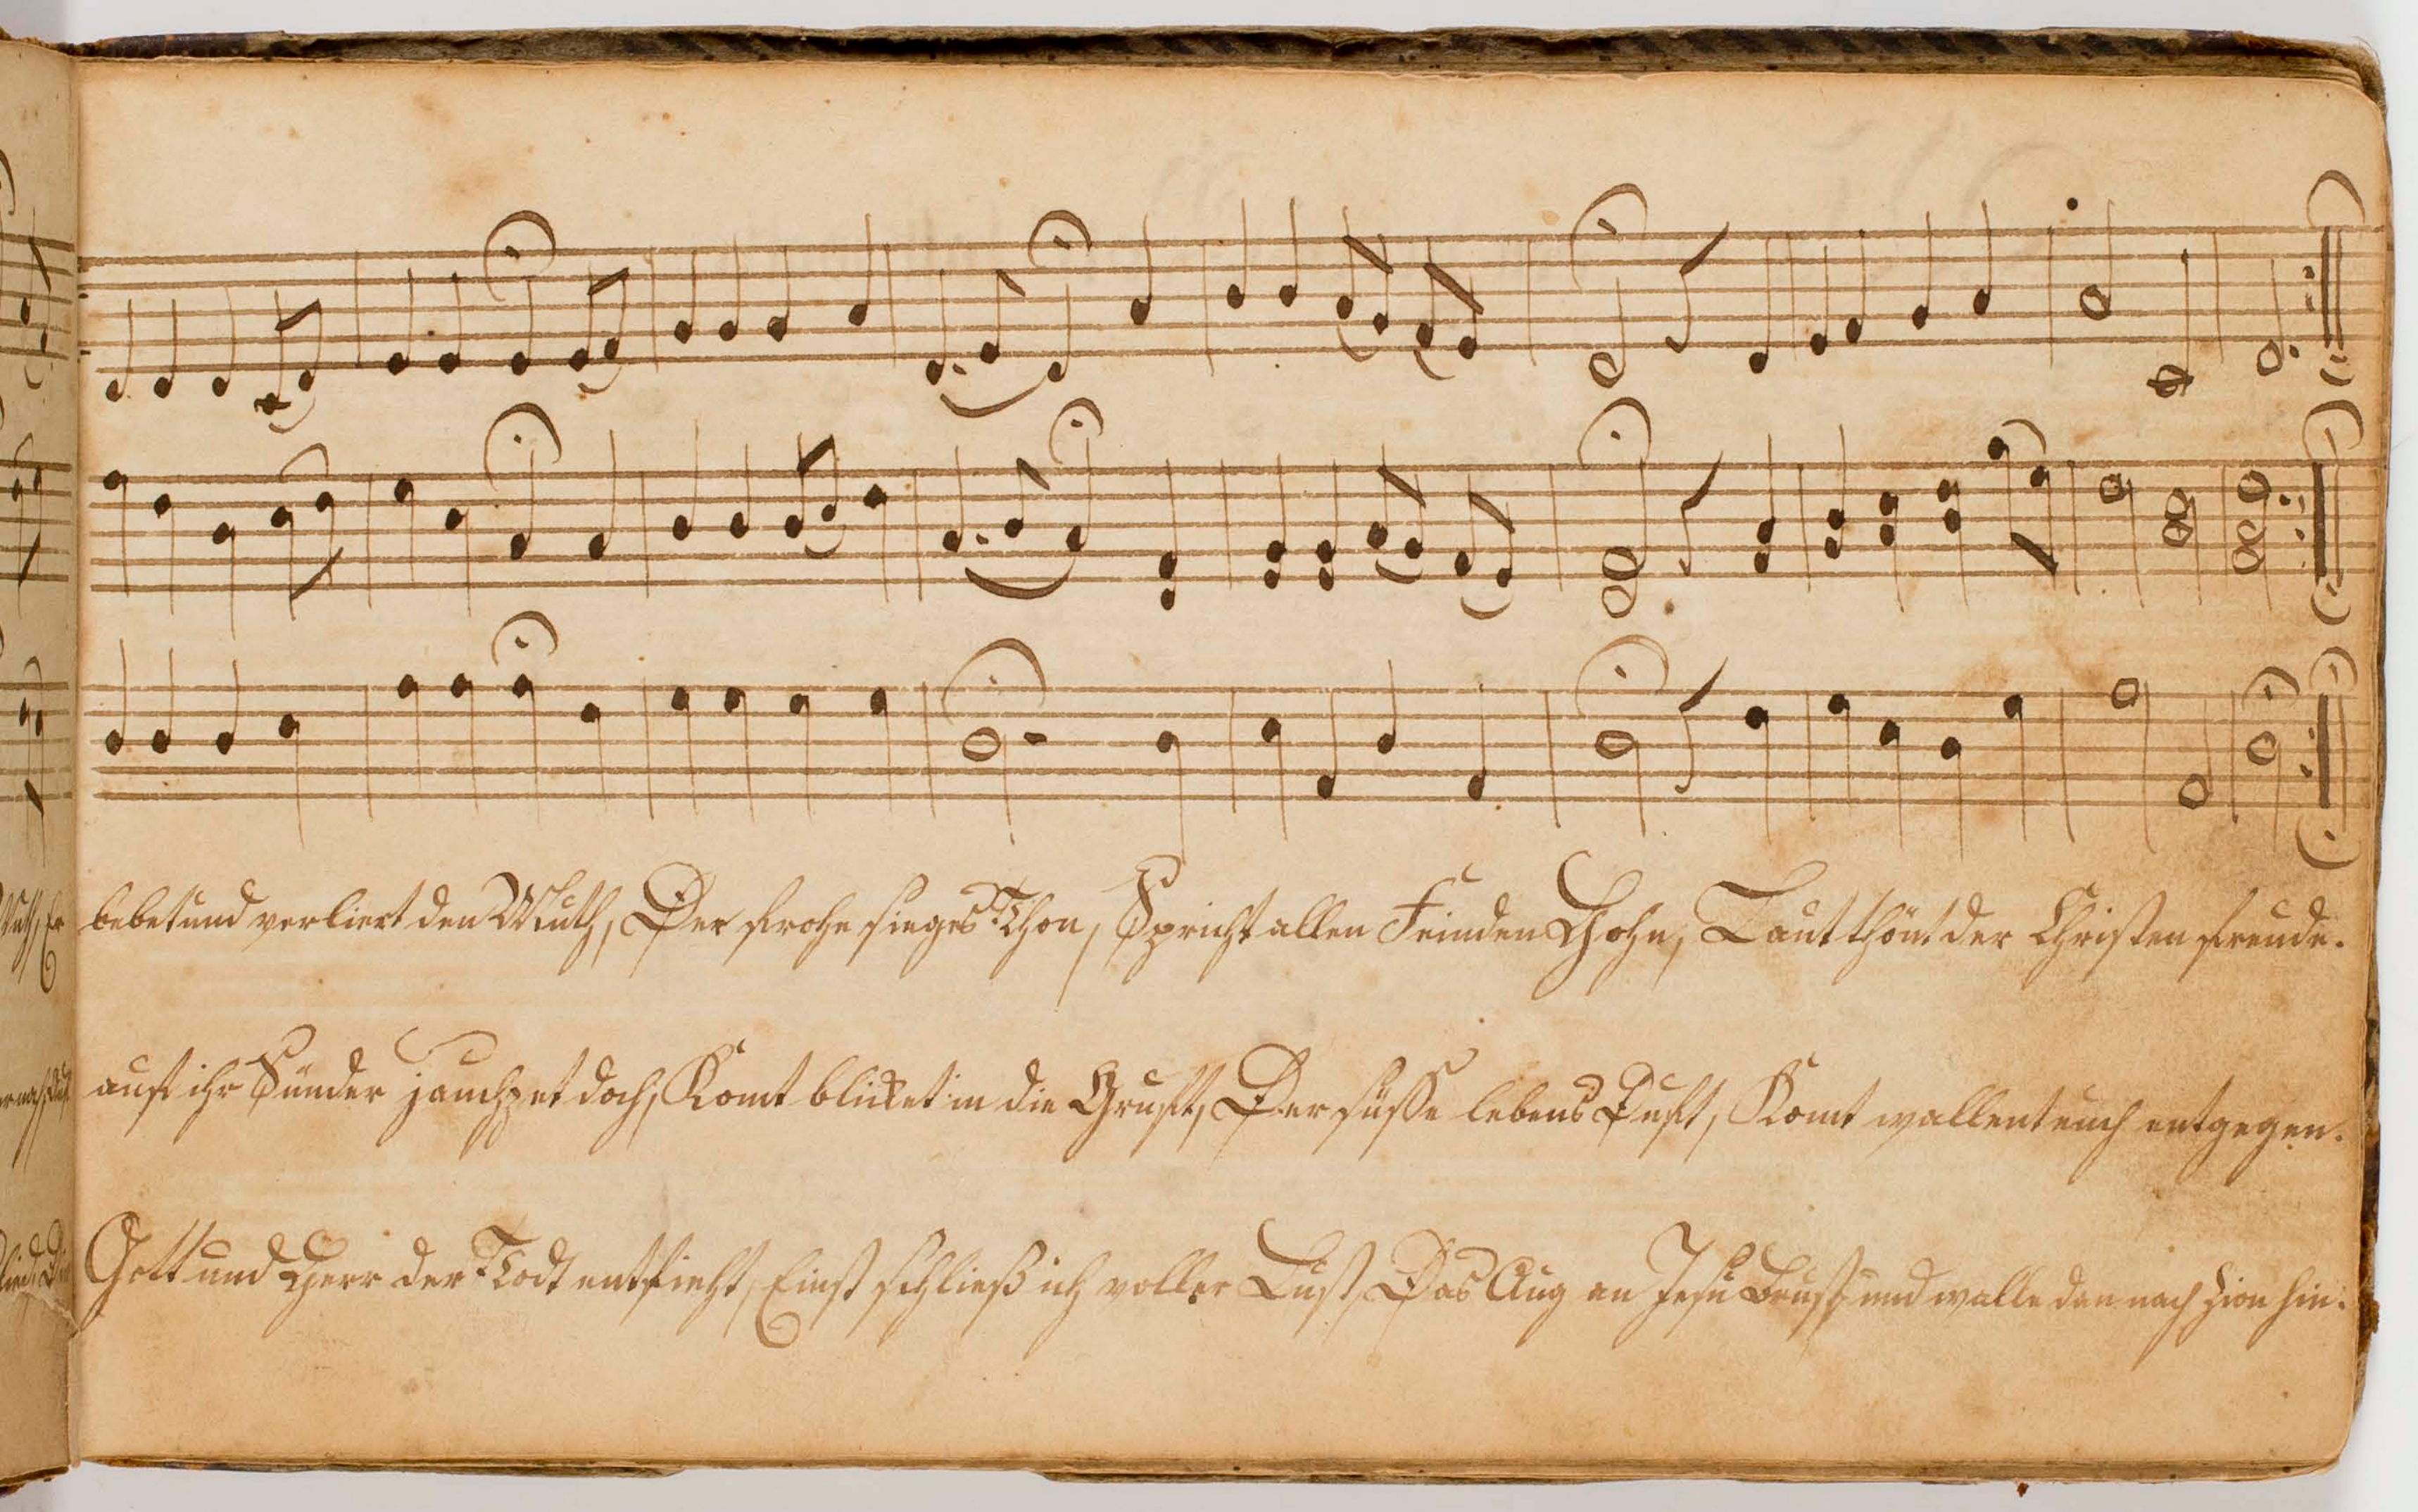 bebet und verliert den Muth, Der frohe sieges Thon, Spricht allen Feinden Hohn, Laut thönt der Christen freude.
auf ihr Sünder jauchzet doch, Komt blicket in die Gruft, Der süsse lebens Duft, Komt wallent euch entgegen.
Gott und Herr der Todt entflieht, Einst schließ ich voller Lust, Das Aug an Jesu Brust, und walle dan nach Zion hin.